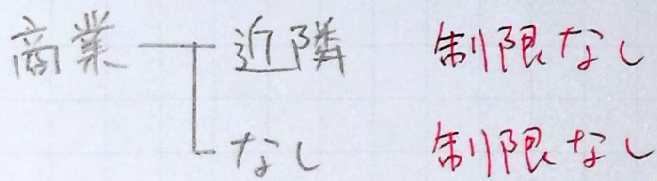 商業 近隣 制限なし
なし 制限なし